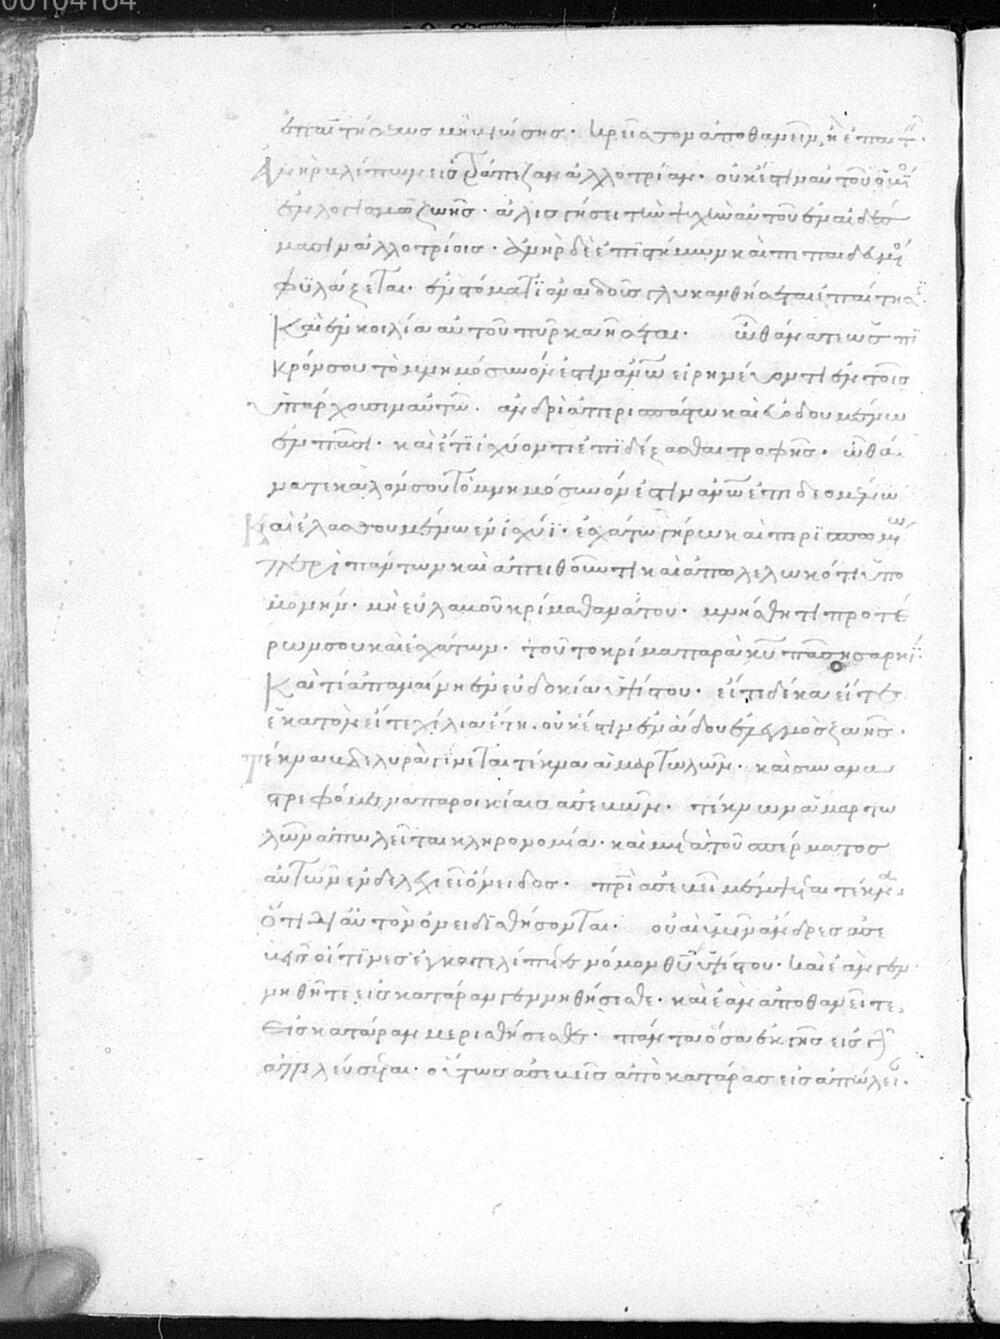 00104164
ἐπαιτήσεως μὴ βιώσῃς· κρεῖσσον ἀποθανεῖν ἢ ἐπαιτεῖν·
Ἀνὴρ βλέπων εἰς τράπεζαν ἀλλοτρίαν· οὐκ ἔστιν αὐτοῦ ὁ βίος
ἐν λογισμῷ ζωῆς· ἀλισγήσει τὴν ψυχὴν αὐτοῦ ἐν αἰδέσ
μασιν ἀλλοτρίοις· Ἀνὴρ δὲ ἐπιστήμων καὶ πεπαιδευμένος
φυλάξεται· ἐν στόματι ἀναιδοῦς γλυκανθήσεται ἐπαίτησις·
Καὶ ἐν κοιλίᾳ αὐτοῦ πῦρ καυήσεται· ὦ θάνατε ὡς πι
κρόν σου τὸ μνημόσυνόν ἐστιν ἀνθρώπῳ εἰρηνεύοντι ἐν τοῖς
ὑπάρχουσιν αὐτῷ· ἀνδρὶ ἀπερισπάστῳ καὶ εὐοδουμένῳ
ἐν πᾶσι· καὶ ἔτι ἰσχύοντι ἐπιδέξασθαι τροφῆς· ὦ θά
νατε καλόν σου τὸ μνημόσυνόν ἐστιν ἀνθρώπῳ ἐπιδεομένῳ
Καὶ ἐλασσουμένῳ ἐν ἰσχύϊ· ἐσχάτῳ γήρῳ καὶ περισπωμένῳ
περὶ πάντων καὶ ἀπειθοῦντι καὶ ἀπολελωκότι ὑπο
μονήν· μὴ εὐλαβοῦ κρίμα θανάτου· μνήσθητι προτέ
ρων σου καὶ ἐσχάτων· τοῦτο κρίμα παρὰ κυ πάσῃ σαρκί·
Καὶ τί ἀπαναίνῃ ἐν εὐδοκίᾳ ὑψίστου· εἴτε δέκα εἴτε
ἑκατὸν εἴτε χίλια ἔτη· οὐκ ἔστιν ἐν ᾅδου ἐλεγμὸς ζωῆς·
Τέκνα βδελυρὰ γίνεται τέκνα ἁμαρτωλῶν· καὶ συνανα
στρεφόμενα παροικίαις ἀσεβῶν· τέκνων ἁμαρτω
λῶν ἀπολεῖται κληρονομία· καὶ μετὰ τοῦ σπέρματος
αὐτῶν ἐνδελεχιεῖ ὄνειδος· πρὶ ἀσεβεῖ μέμψεται τέκνα·
ὅτι δι' αὐτὸν ὀνειδισθήσονται· οὐαὶ ὑμῖν ἄνδρες ἀσε
βεῖς οἵτινες ἐγκατελίπετε νόμον θυ ὑψίστου· καὶ ἐὰν γεν
νηθῆτε εἰς κατάραν γεννηθήσεσθε· καὶ ἐὰν ἀποθανεῖτε,
εἰς κατάραν μερισθήσεσθε· πάντα ὅσα ἐκ γῆς εἰς γῆν
ἀπελεύσεται· οὕτως ἀσεβεῖς ἀπὸ κατάρας εἰς ἀπώλειαν·